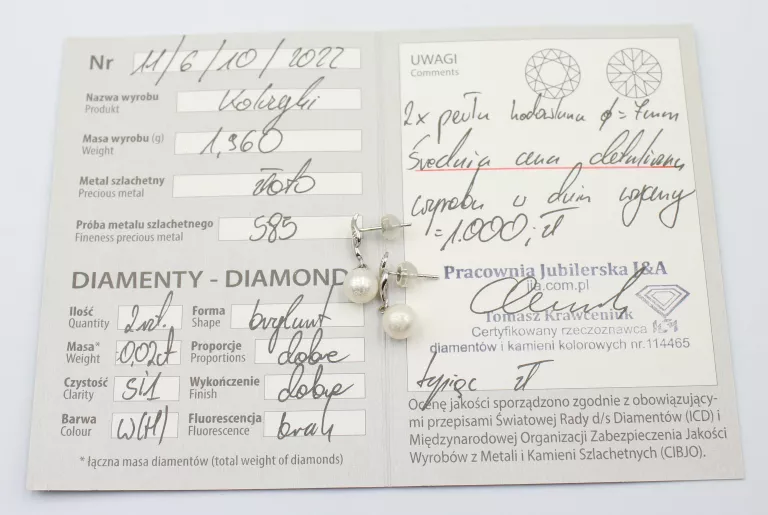 Nr 11/6/10/2022
Nazwa wyrobu
Produkt
Kolczyki
Masa wyrobu (g)
Weight
1,960
Metal szlachetny
Precious metal
złoto
Próba metalu szlachetnego
Fineness precious metal
585
DIAMENTY - DIAMOND
Ilość
Quantity
2szt.
Forma
Shape
brylant
Masa*
Weight
0,02ct
Proporcje
Proportions
dobre
Czystość
Clarity
SI1
Wykończenie
Finish
dobre
Barwa
Colour
W(H)
Fluorescencja
Fluorescence
brak
* łączna masa diamentów (total weight of diamonds)
UWAGI
Comments
2x perła hodowlana ϕ=7mm
Średnia cena detaliczna
wyrobu w dniu wyceny
=1.000,- zł
Pracownia Jubilerska J&A
jla.com.pl
Tomasz Krawceniuk
Certyfikowany rzeczoznawca
diamentów i kamieni kolorowych nr.114465
tysiąc zł
Ocenę jakości sporządzono zgodnie z obowiązujący-
mi przepisami Światowej Rady d/s Diamentów (ICD) i
Międzynarodowej Organizacji Zabezpieczenia Jakości
Wyrobów z Metali i Kamieni Szlachetnych (CIBJO).